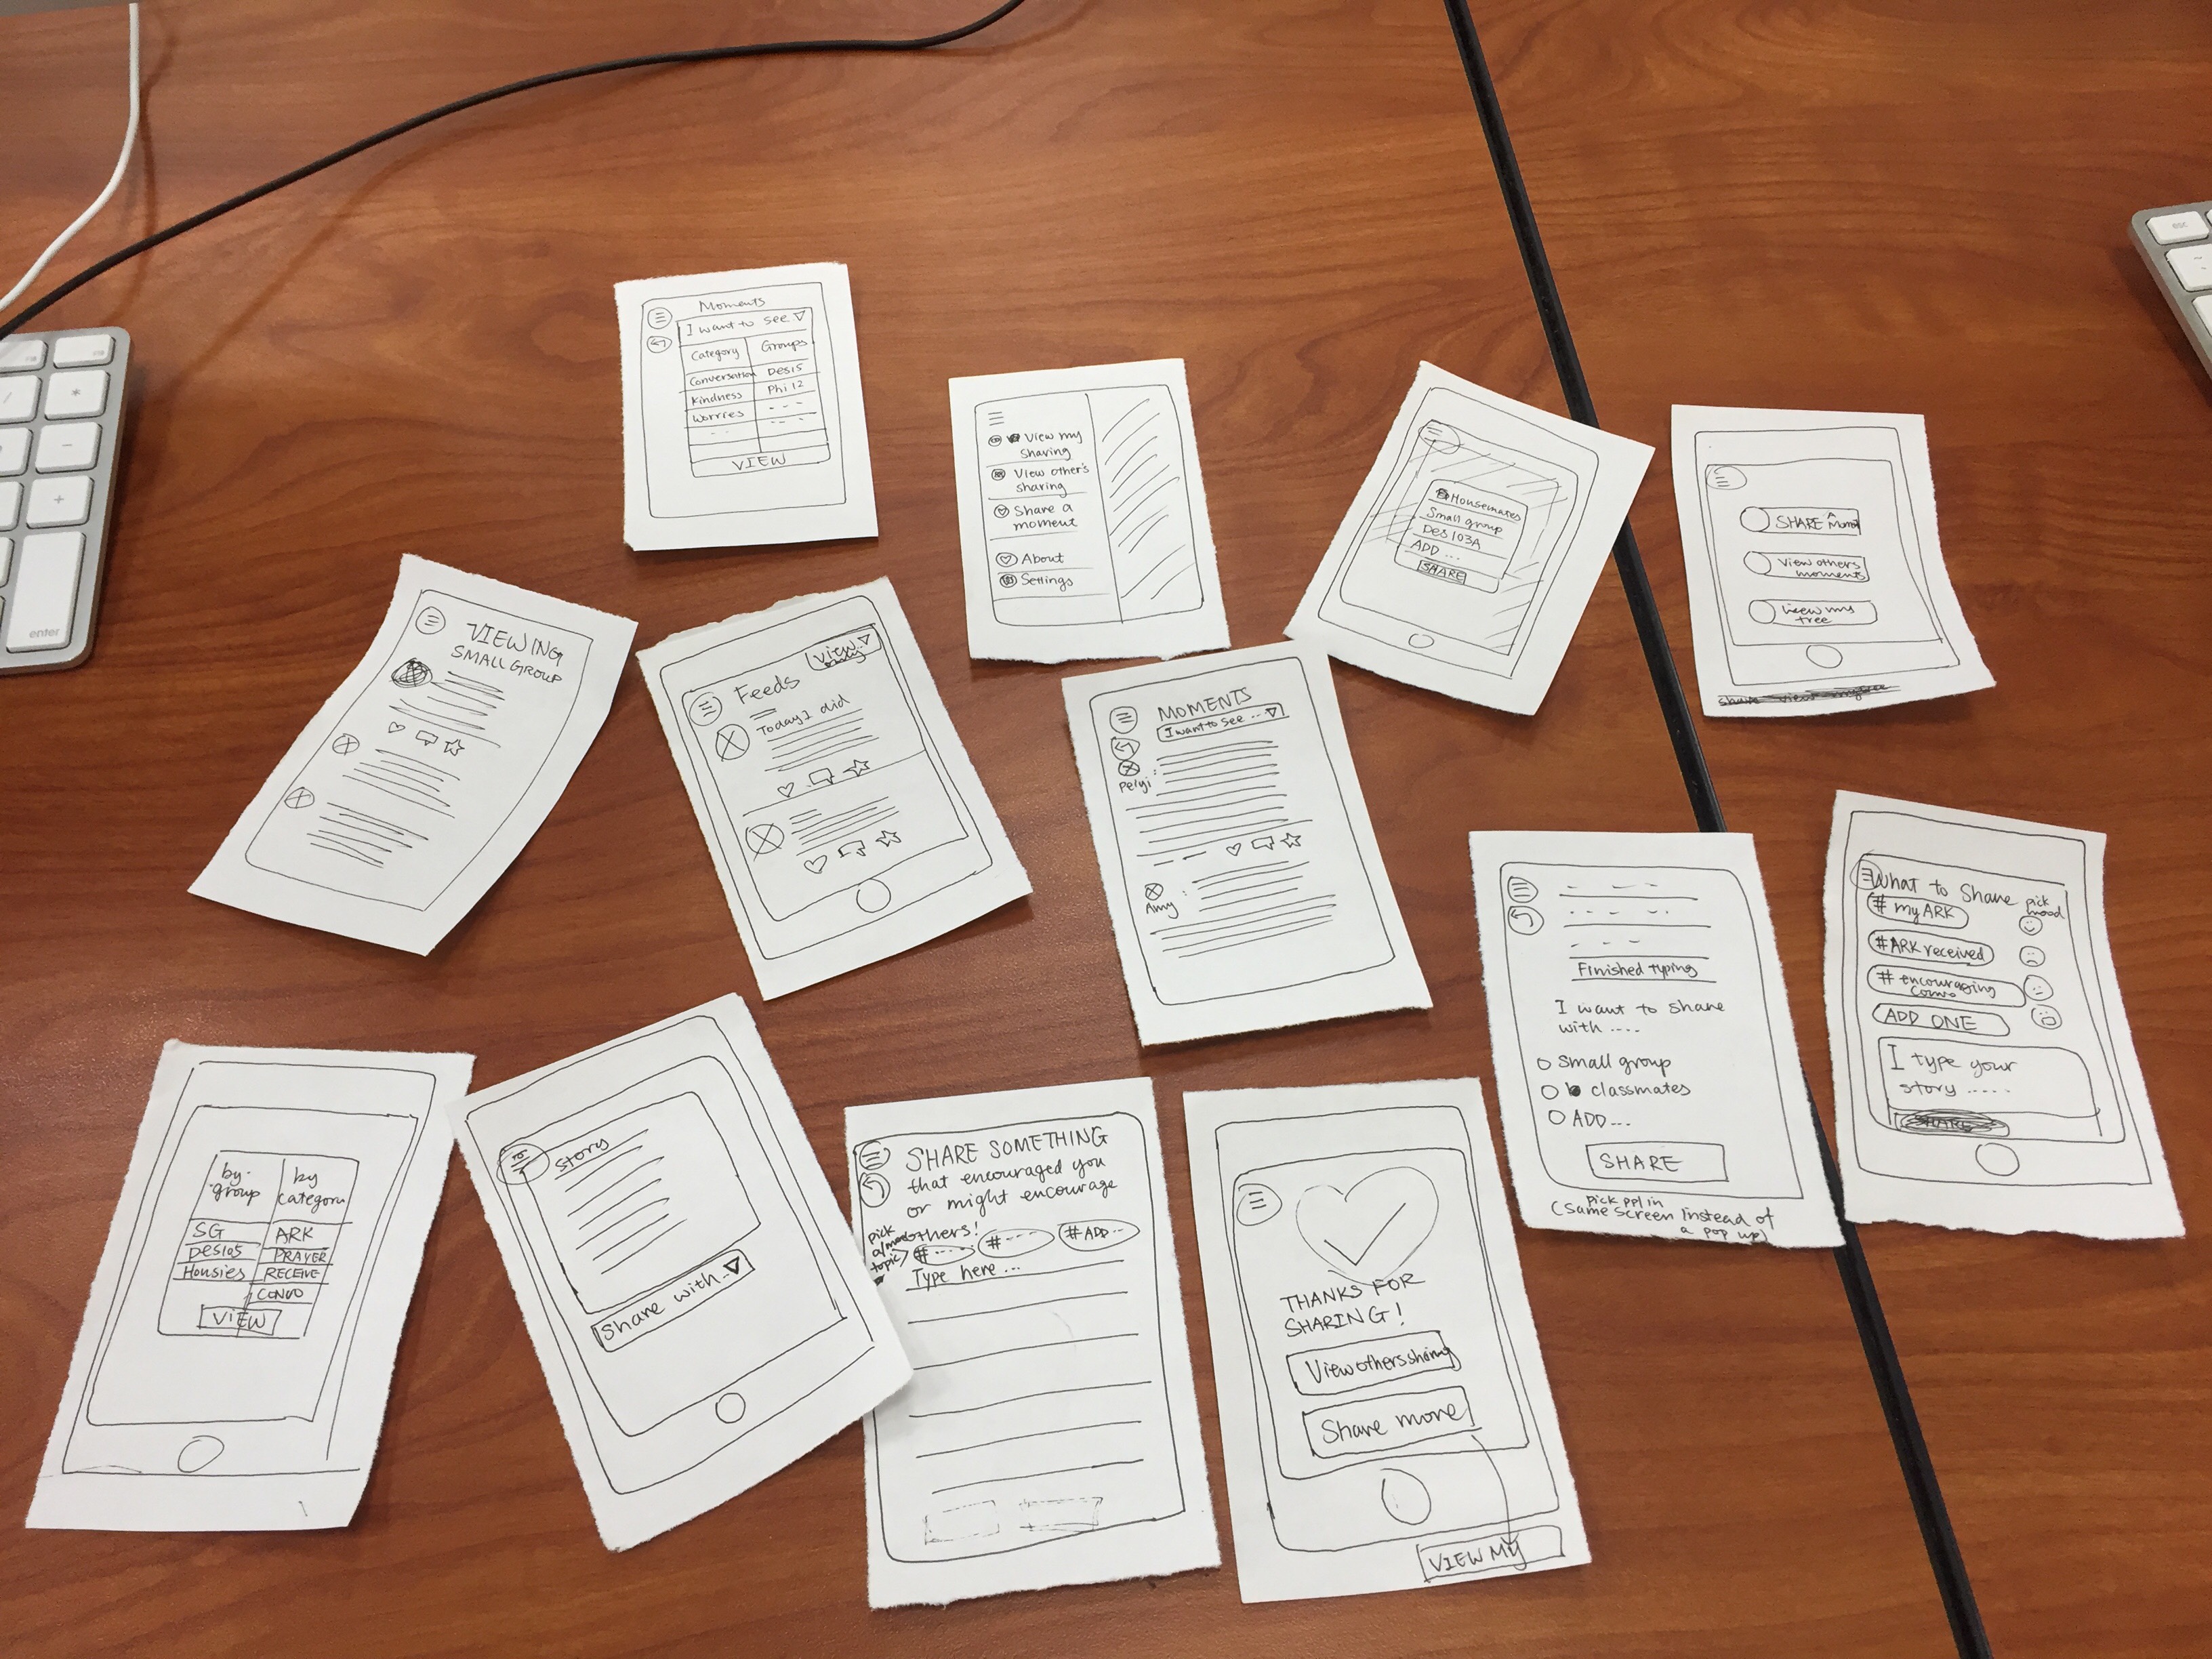 Moments
I want to see
Category Groups
Conversation Des15
Kindness Phi 12
Worries
VIEW
View my
sharing
View other's
sharing
Share a
moment
About
Settings
Housemates
Small group
Des 103A
ADD ...
SHARE
SHARE A
View others
moments
View my
tree
VIEWING
SMALL GROUP
View
Feeds
Today I did
MOMENTS
I want to see ...
Peiyi :
Amy :
Finished typing
I want to share
with ....
small group
classmates
ADD...
SHARE
pick ppl in
(same screen instead of
a pop up)
What to Share pick
mood
# myARK
#ARK received
# encouraging
convo
ADD ONE
I type your
story .....
SHARE
by group by category
SG ARK
Des105 PRAYER
Housies RECEIVE
CONVO
VIEW
story
Share with..
SHARE SOMETHING
that encouraged you
or might encourage
others!
pick
topic
# ---- # ---- #ADD...
Type here ...
THANKS FOR
SHARING!
View others sharing
Share more
VIEW MY
esc
enter